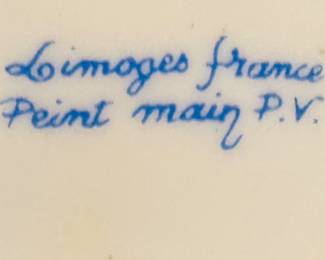 Limoges france
Peint main P.V.